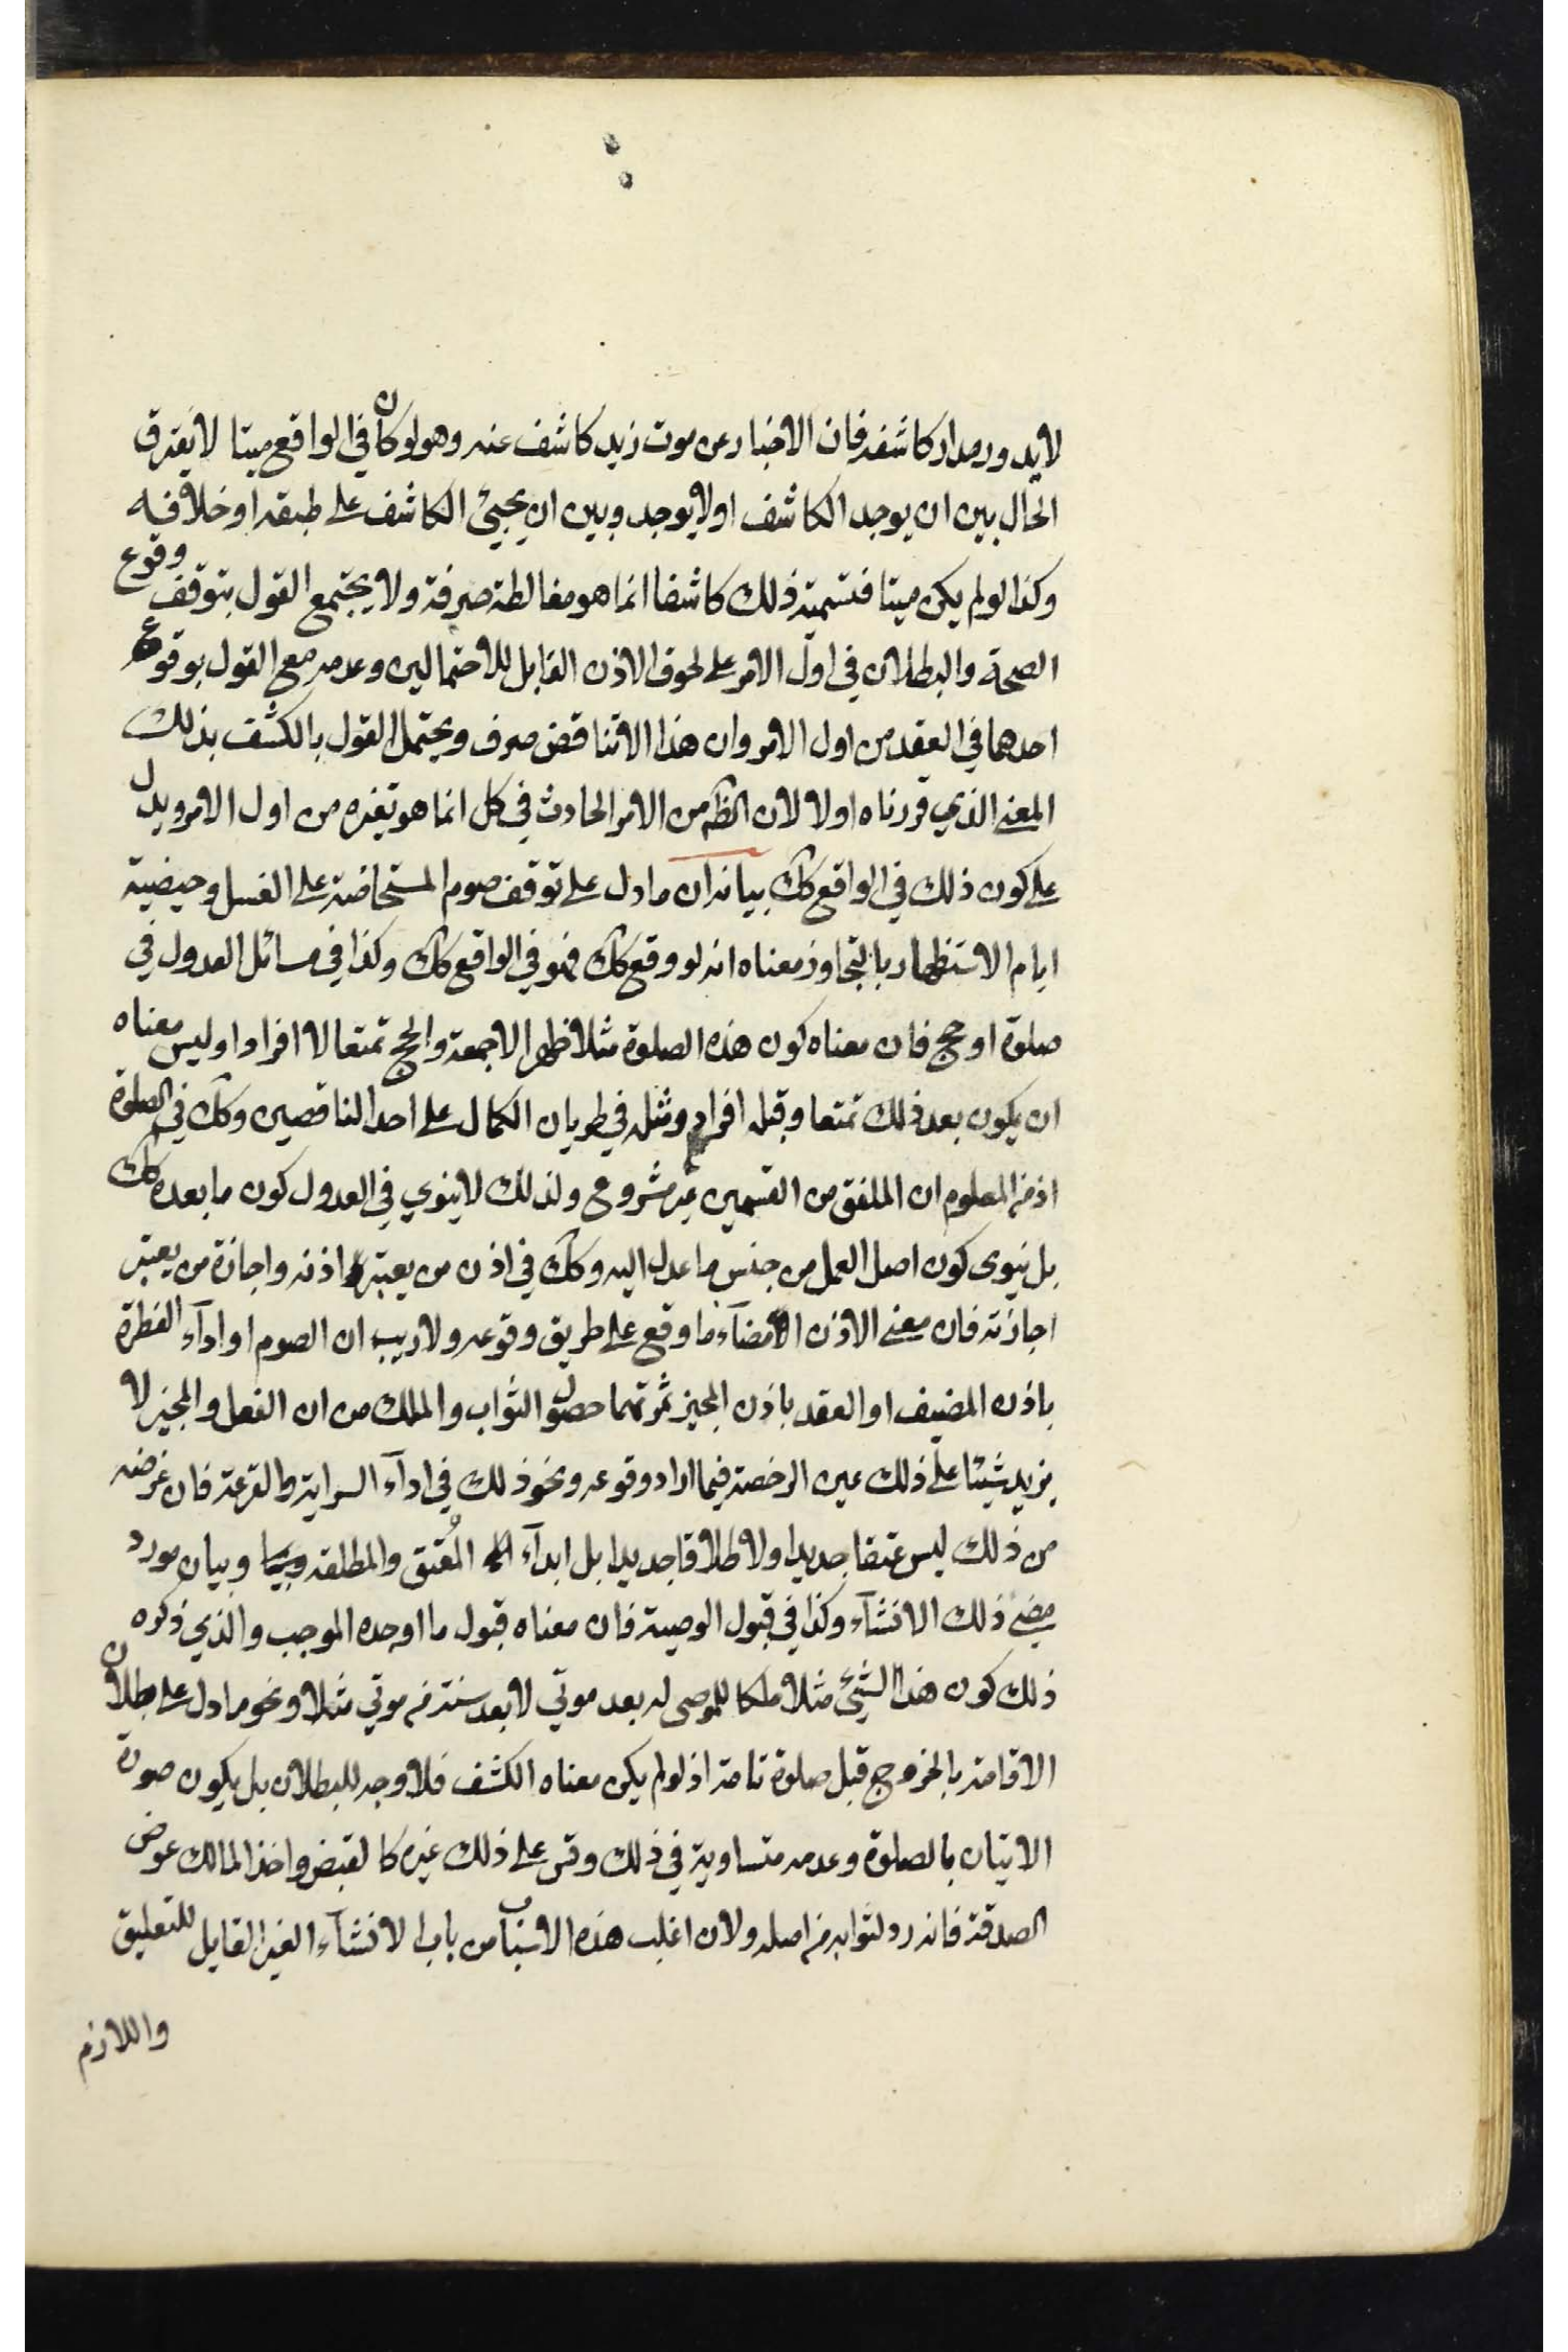 لا يدور مدار كاشفه فان الاخبار عن موت زيد كاشف عنه وهو لو كان في الواقع ميتا لا يفترق
الحال بين ان يوجد الكاشف او لا يوجد وبين ان يجيئ الكاشف على طبقه او خلافه
وكذا لو لم يكن ميتا فتسمية ذلك كاشفا انما هو مغالطة صرفة ولا يجتمع القول بتوقف وقوع
الصحة والبطلان في اول الامر على لحوق الاذن القابل للاحتمالين وعدمه مع القول بوقوع
احدهما في العقد من اول الامر وان هذا الا تناقض صرف ويحتمل القول بالكشف بذلك
المعنى الذي قررناه اولا لان الظ من الامر الحادث في كل انما هو تغيره من اول الامر ويدل
على كون ذلك في الواقع كك بيانه ان ما دل على توقف صوم المستحاضة على الغسل وحيضية
ايام الاستظهار بالتجاوز معناه انه لو وقع كك فهو في الواقع كك وكذا في مسائل العدول في
صلوة او حج فان معناه كون هذه الصلوة مثلا ظهرا لا جمعة والحج تمتعا لا افرادا وليس معناه
ان يكون بعد ذلك تمتعا وقبله افراد ومثله في طريان الكمال على احد الناقصين وكك في الصلوة
اذ من المعلوم ان الملفق من القسمين غير مشروع ولذلك لا ينوي في العدول كون ما بعده كك
بل ينوى كون اصل العمل من جنس ما عدل اليه وكك في اذن من يعتبر اذنه واجازة من يعتبر
اجازته فان معنى الاذن الامضآء ما وقع على طريق وقوعه ولا ريب ان الصوم او ادآء الفطرة
باذن المضيف او العقد باذن المجيز ثمرتهما حصول الثواب والملك من ان الفعل والمجيز لا
يزيد شيئا على ذلك عين الرخصة فيما اراد وقوعه ونحو ذلك في ادآء السراية والقرعة فان غرضه
من ذلك ليس عتقا جديدا ولا طلاقا جديدا بل ابدآء المُعتق والمطلقة وبيان مورد
مضى ذلك الانشآء وكذا في قبول الوصية فان معناه قبول ما اوجده الموجب والذي ذكره
ذلك كون هذا الشيئ مثلا ملكا للموصى له بعد موتي لا بعد سنة من موتي مثلا ونحو ما دل على بطلان
الاقامة بالخروج قبل صلوة تامة اذ لو لم يكن معناه الكشف فلا وجه للبطلان بل يكون صورة
الاتيان بالصلوة وعدمه متساوية في ذلك وقس على ذلك غيره كالقبض واخذ المالك عوض
الصدقة فانه رد لثوابه من اصله ولان اغلب هذه الاسباب من باب الانشآء الغير القابل للتعليق
واللازم